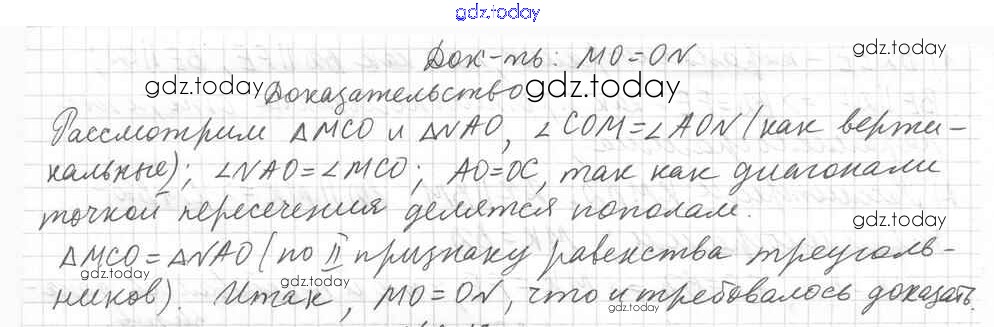 gdz.today
Док-ть: MO=ON gdz.today
gdz.today Доказательство gdz.today
Рассмотрим △MCO и △NAO, ∠COM=∠AON (как верти-
кальные); ∠NAO=∠MCO; AO=OC, так как диагонали
точкой пересечения делятся пополам. gdz.today
△MCO=△NAO (по II признаку равенства треуголь-
gdz.today gdz.today
ников). Итак, MO=ON, что и требовалось доказать.
gdz.today